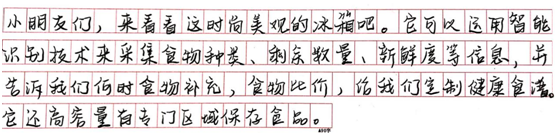 小朋友们，来看看这时尚美观的冰箱吧。它可以运用智能
识别技术来采集食物种类、剩余数量、新鲜度等信息，并
告诉我们何时食物补充，食物比价，给我们定制健康食谱。
它还高容量有专门区域保存食品。